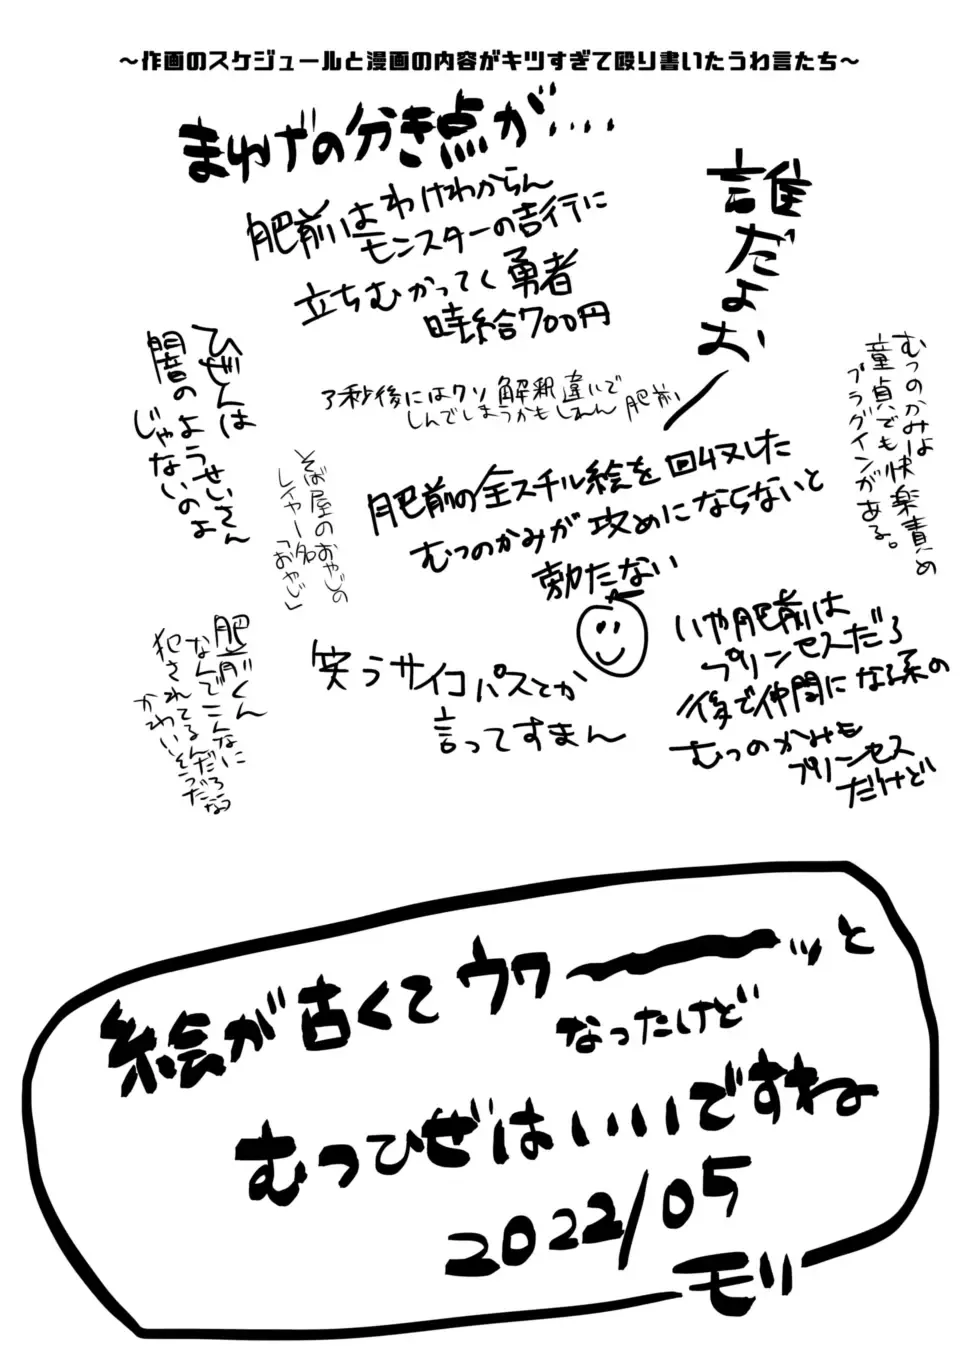 ~作画のスケジュールと漫画の内容がキツすぎて殴り書いたうわ言たち~
まゆげの分き点が....
誰だよお
肥前はわけわからん
モンスターの吉行に
立ちむかってく勇者
時給700円
ひぜんは
闇のようせいさん
じゃないのよ
3秒後にはクソ解釈違いで
しんでしまうかもしれん 肥前
むつのかみは
童貞でも快楽責め
プラグインがある。
そば屋のおやじの
レイヤー名
「おやじ」
肥前の全スチル絵を回収した
むつのかみが攻めにならないと
勃たない
肥前くん
なんでこんなに
犯されてるんだろうな
かわいそうだな
笑うサイコパスとか
言ってすまん
いや肥前は
プリンセスだろ
後で仲間になる系の
むつのかみも
プリンセス
だけど
絵が古くてウワーーーッと
なったけど
むつひぜはいいですね
2022/05
モリ